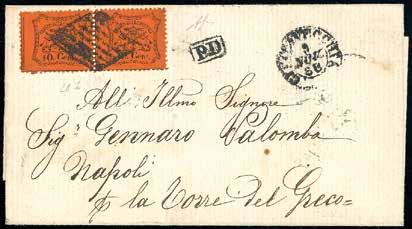 10 Cent.
Cent.
P.D
CIVITAVECCHIA
9
NOV.
68
All Illmo Signore
Sigr Gennaro Palomba
Napoli
p la Torre del Greco